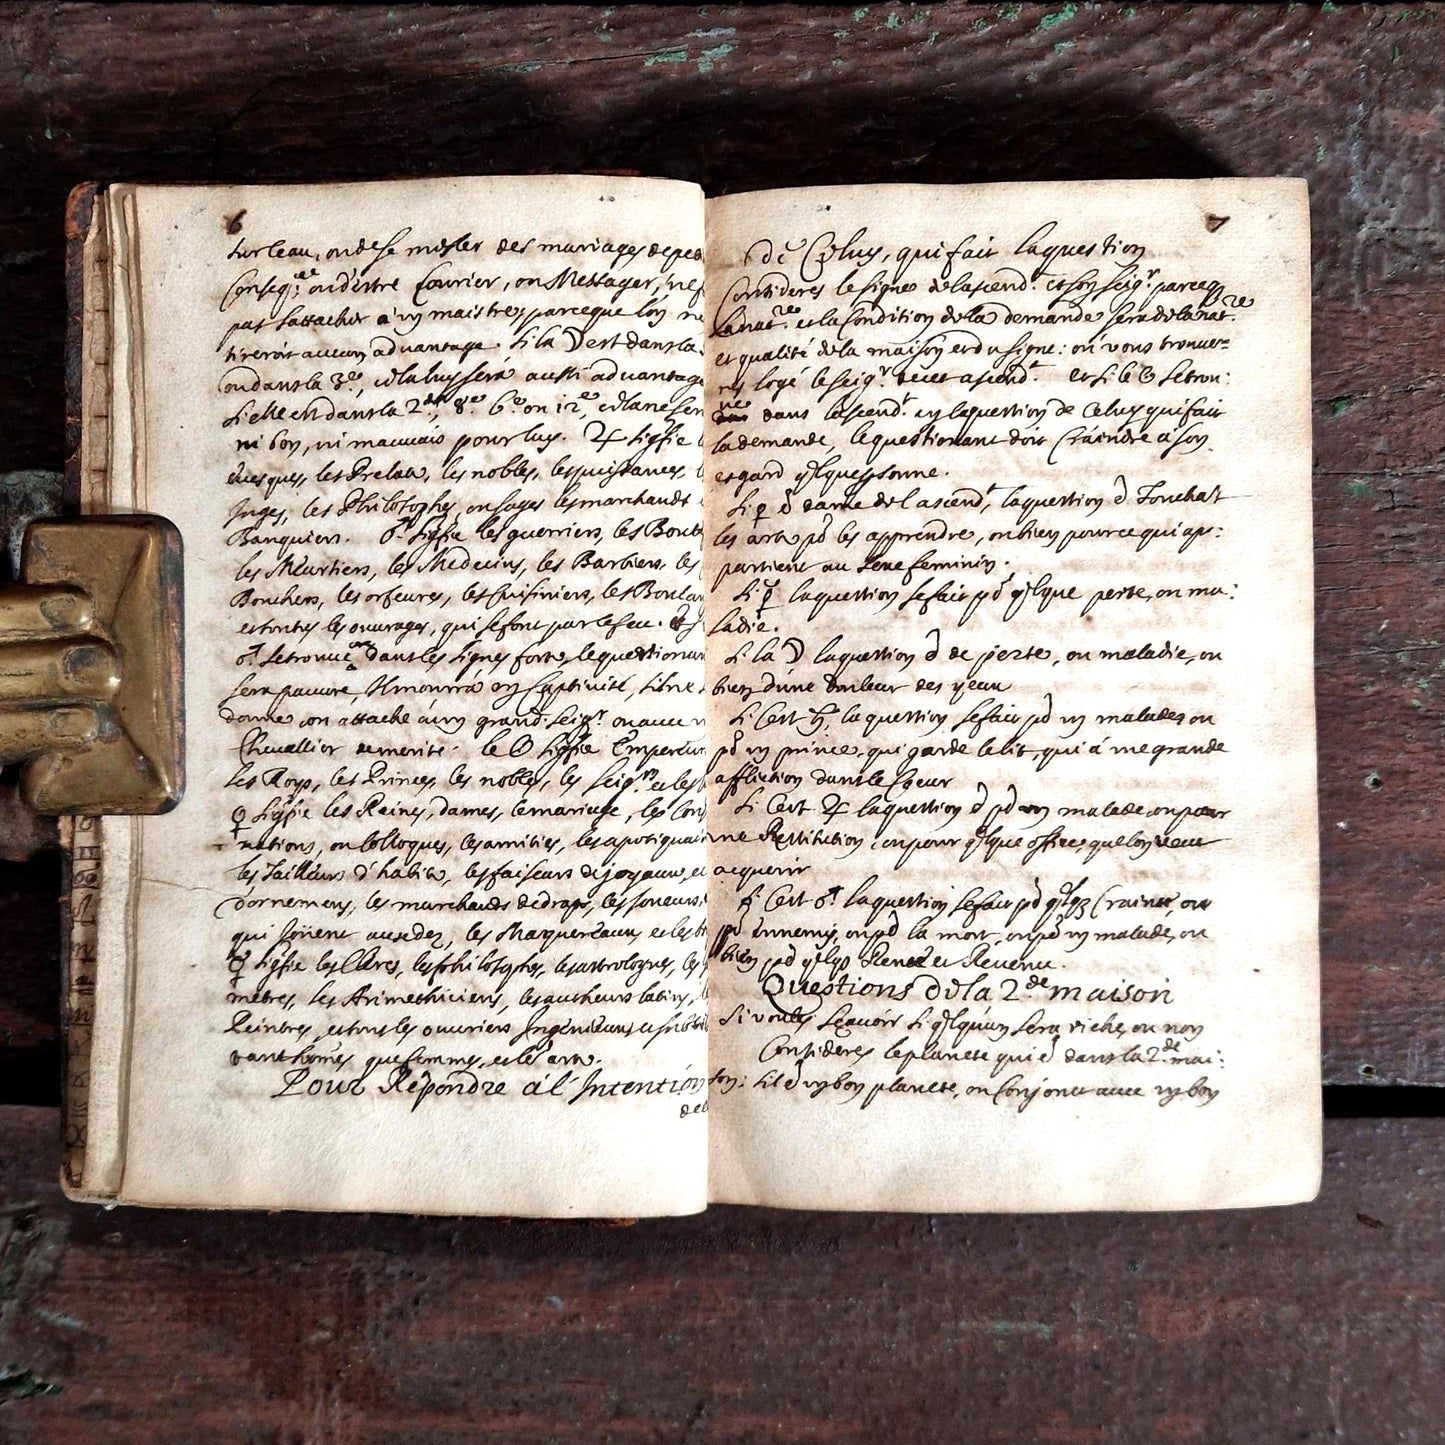 6
sur leau, ou de se mesler des mariages de
Conseq.ce ou d'estre Courier, ou Messager,
pas sattacher a un maistre, parceque lon ne
tireroit aucun aduantage. Si la ☽ est dans la
ou dans la 3.e, cela luy sera aussi aduantag
Si elle est dans la 2.de, 8.e 6.e ou 12.e, cela ne ser
ni bon, ni mauuais pour luy. ♃ sig̃fie
euesques, les Prelats, les nobles, les puissances,
Juges, les Philosophes, ou sages les marchands
Banquiers. ♂ sig̃fie les guerriers, les
les Meurtiers, les Medecins, les Barbiers, les
Bouchers, les orfeures, les Cuisiniers, les Boulan
et toutes les ouurages, qui se font par le feu.
♂ se trouue dans les signes forts, le questionan
sera pauure, Il mourra en Captiuité, sil ne
donne ou attache a un grand Seig.r ou auec
Cheuallier de merite. le ☉ sig̃fie
Les Roys, les Princes, les nobles, les Seig.rs et les
♀ sig̃fie les Reines, dames, le mariage, les
nations, ou Colloques, les amities, les apotiquair
les Tailleurs d'habits, les faiseurs de joyaux, et
d'ornemens, les marchands de draps, les
qui, les Maquereaux et les
☿ sig̃fie les Clercs, les philosophes, les astrologues, les
metres, les Arimethiciens, les autheurs latins,
Peintres, et tous les ouuriers Ingenieux et
tant hom̃es que femmes, et les arts.
Pour Répondre á l'Intention
de
7
de Celuy, qui fait la question
Consideres le signe de lascend.t et son Seig.r parceq
la nat.re et la Condition de la demande sera de la nat.re
et qualité de la maison et du signe: ou vous trouue=
rés logé le Seig.r de cet ascend.t Et si le ☉ se trou:
ue dans lascend.t en la question de Celuy qui fait
la demande, le questionant doit Craindre a son
esgard q̃lque p̱sonne.
Si ♀ ẽ dame de l ascend.t, la question ẽ Touchãt
les arts põ les apprendre, ou bien pour ce qui ap:
partient au sexe feminin.
Si ☿ la question se fait põ q̃lque perte, ou ma:
ladie.
Si la ☽ la question ẽ de perte, ou maladie, ou
bien d'une douleur des yeux
Si Cest ♄ la question se fait põ un malade, ou
põ un prince, qui garde le lit, qui á une grande
affliction dans le Coeur
Si Cest ♃ la question ẽ põ un malade, ou pour
une Restitution, ou pour q̃lque office, que lon veut
acquerir
Si Cest ♂ la question se fait põ q̃lq Crainte, ou
põ ennemy, ou põ la mort, ou põ un malade, ou
bien põ q̃lqs Rente et Reuenu.
Questions de la 2.de maison
Si voulés sçauoir si q̃lqu'un sera riche, ou non
Consideres le planete qui ẽ dans la 2.de mai:
son: Sil ẽ un bon planete, ou Conjoint auec un bon